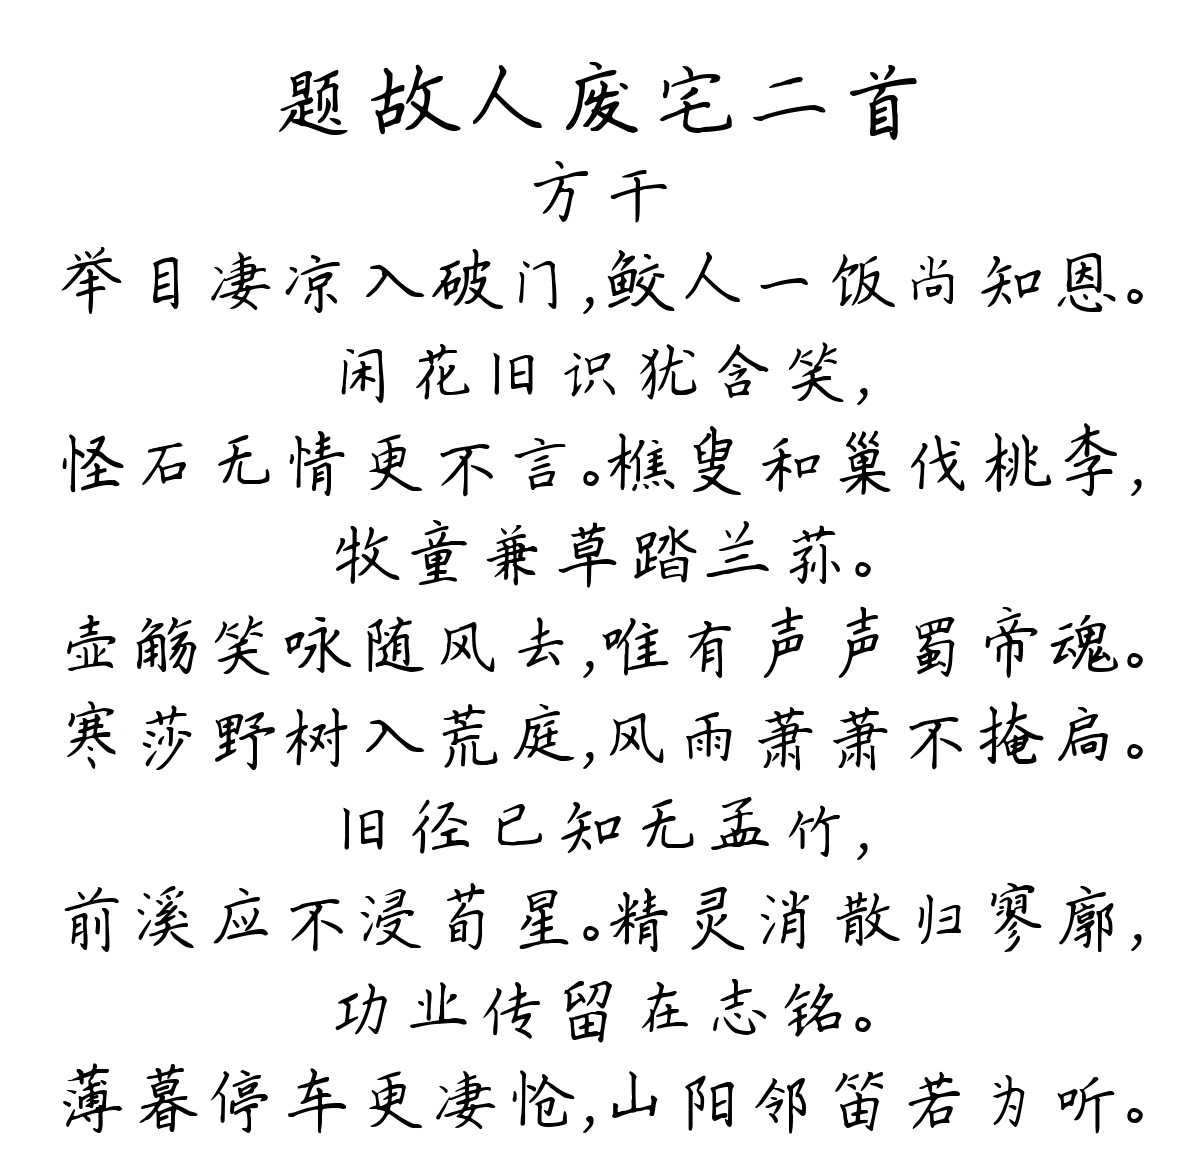 题故人废宅二首
方干
举目凄凉入破门,鲛人一饭尚知恩。
闲花旧识犹含笑,
怪石无情更不言。樵叟和巢伐桃李,
牧童兼草踏兰荪。
壶觞笑咏随风去,唯有声声蜀帝魂。
寒莎野树入荒庭,风雨萧萧不掩扃。
旧径已知无孟竹,
前溪应不浸荀星。精灵消散归寥廓,
功业传留在志铭。
薄暮停车更凄怆,山阳邻笛若为听。